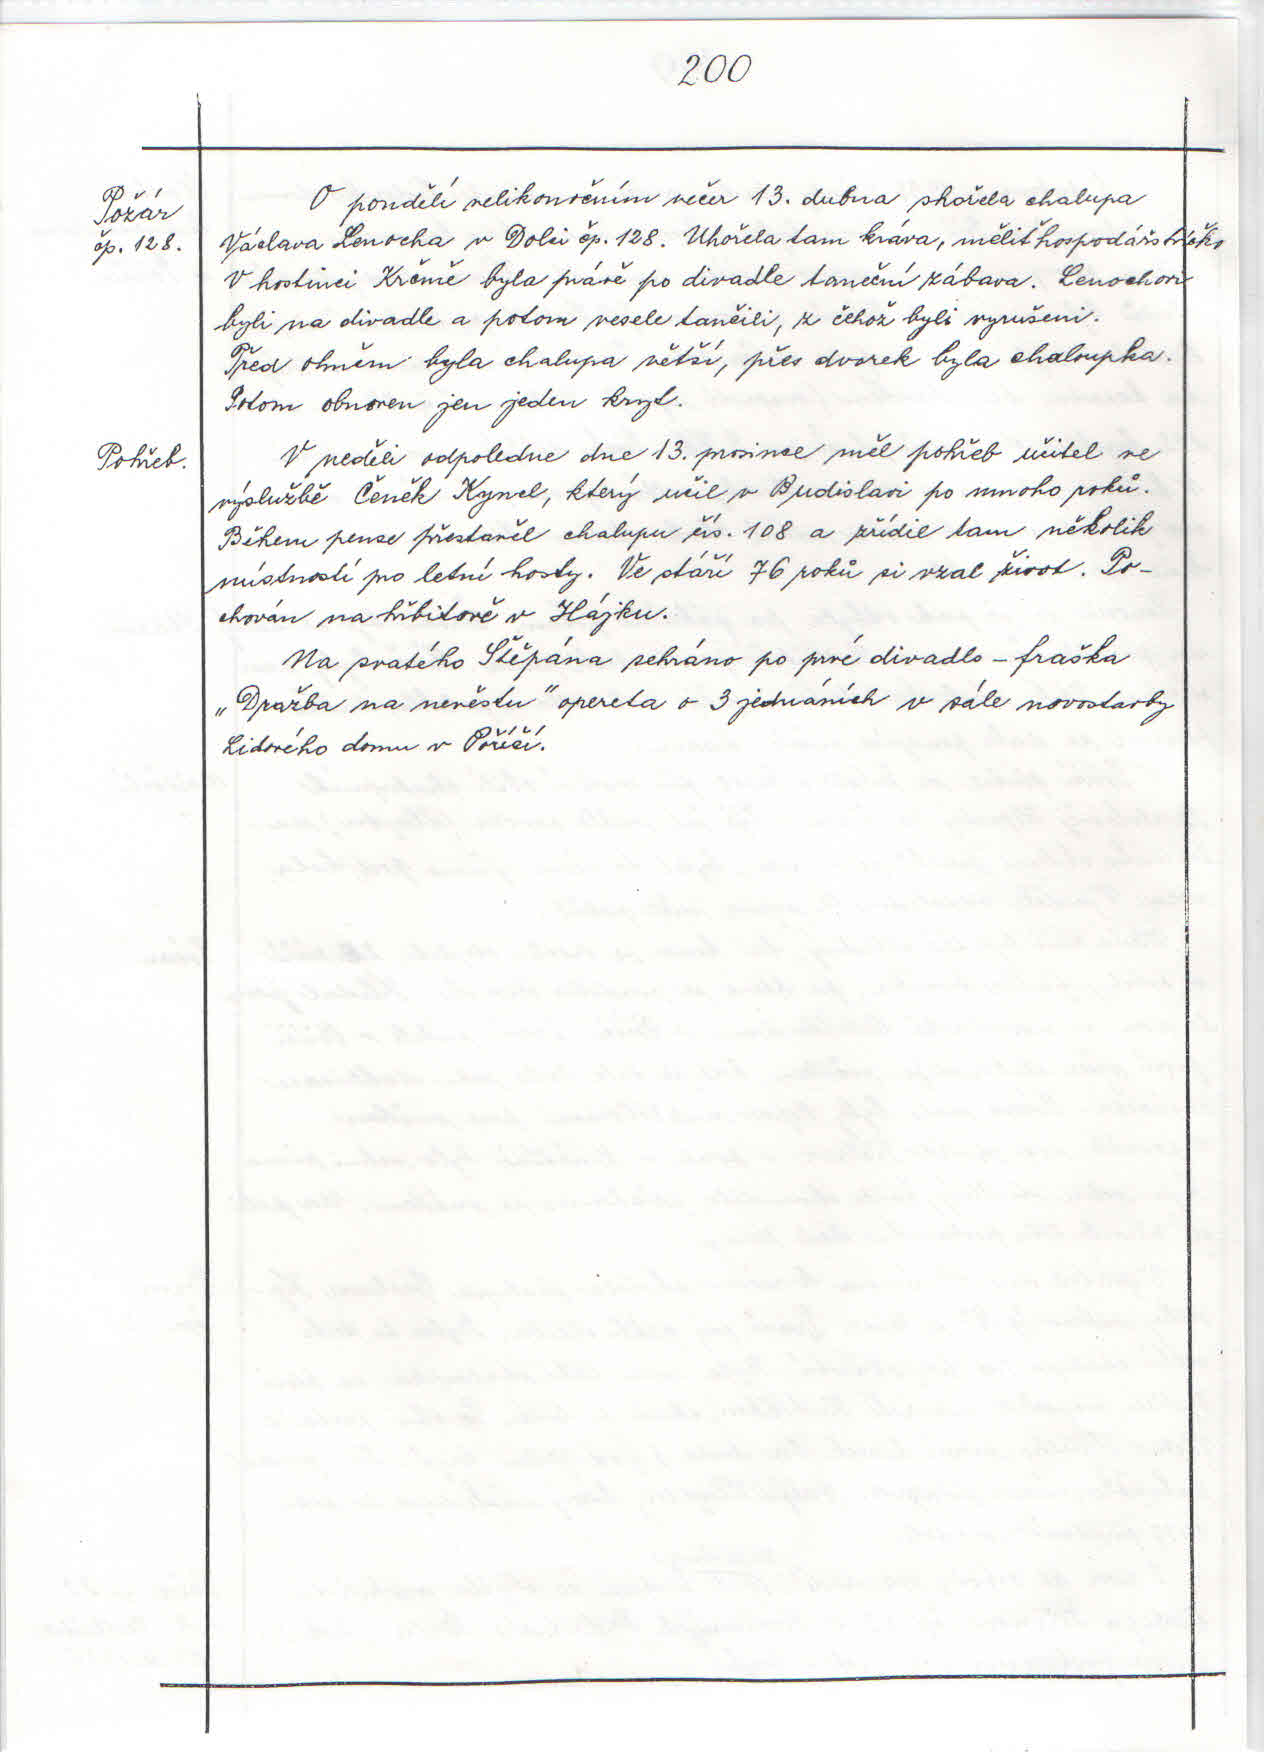 200
Požár
čp. 128.
O pondělí velikonočním večer 13. dubna shořela chalupa
Václava Lenocha v Dolci čp. 128. Uhořela tam kráva, měliť hospodářstvíčko
V hostinci Krčmě byla právě po divadle taneční zábava. Lenochovi
byli na divadle a potom vesele tančili, z čehož byli vyrušeni.
Před ohněm byla chalupa větší, přes dvorek byla chaloupka.
Potom obnoven jen jeden kryt.
Pohřeb.
V neděli odpoledne dne 13. prosince měl pohřeb učitel ve
výslužbě Čeněk Kyncl, který učil v Budislavi po mnoho roků.
Během pense přestavěl chalupu čís. 108 a zřídil tam několik
místností pro letní hosty. Ve stáří 76 roků si vzal život. Po-
chován na hřbitově v Hájku.
Na svatého Štěpána sehráno po prvé divadlo - fraška
„Dražba na nevěstu" opereta o 3 jednáních v sále novostavby
Lidového domu v Poříčí.